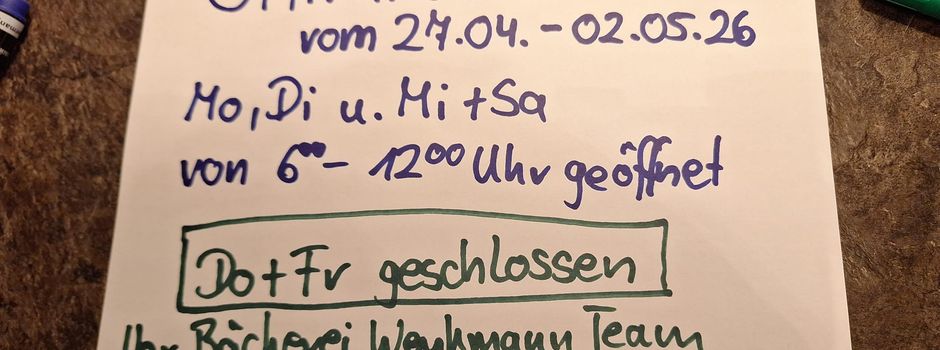 vom 27.04. - 02.05.26
Mo, Di u. Mi + Sa
von 6⁰⁰ - 12⁰⁰ Uhr geöffnet
Do + Fr geschlossen
Ihr Bäckerei Team